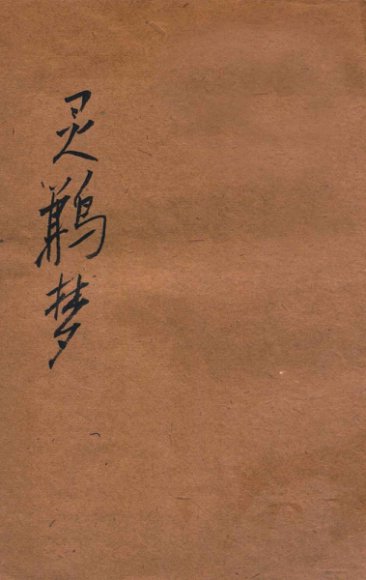 灵鹣梦